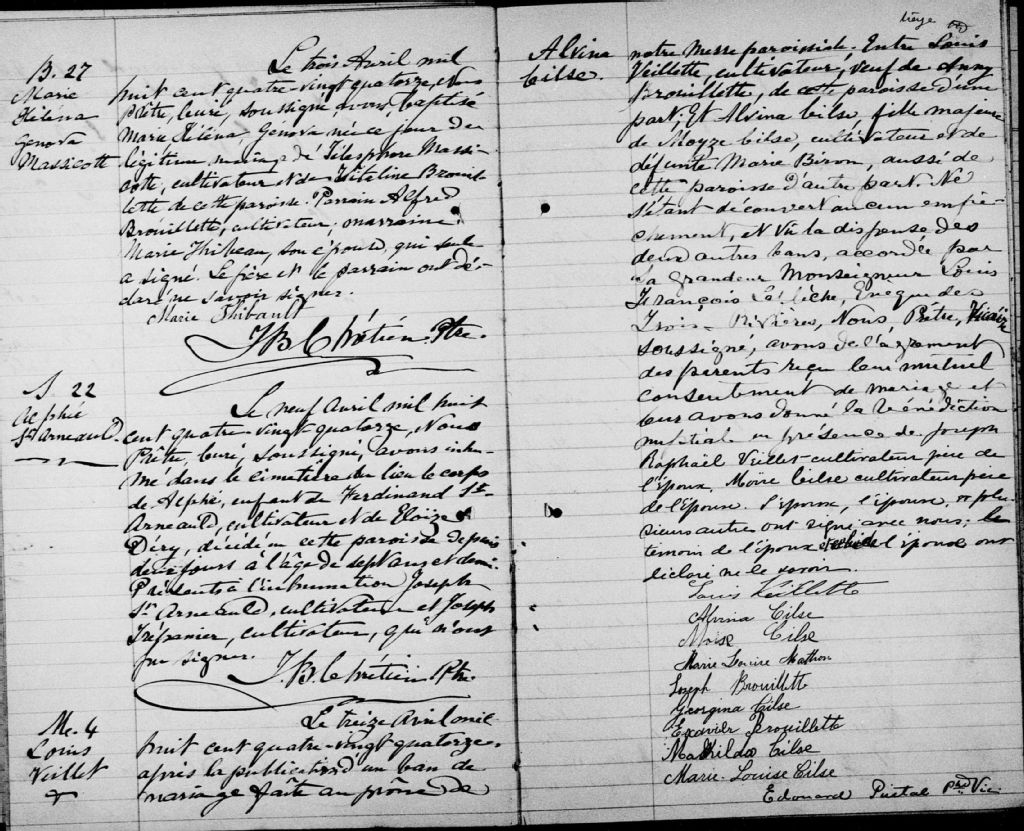 B. 27
Marie
Héléna
Genova
Massicott
Le trois Avril mil
huit cent quatre-vingt quatorze, Nous
Prêtre, Curé, soussigné, avons baptisé
Marie Héléna Génova née ce jour du
légitime mariage de Télesphore Massi-
cotte, cultivateur et de Vitaline Brouil-
lette de cette paroisse. Parrain Alfred
Brouillette, cultivateur; marraine
Marie Thibeau, son épouse, qui seule
a signé. Le père et le parrain ont dé-
claré ne savoir signer.
Marie Thibault
J B Chrétien. Ptre.
S. 22
Alphé
St Arneauld.
Le neuf Avril mil huit
cent quatre-vingt-quatorze, Nous
Prêtre, Curé, soussigné, avons inhu-
mé dans le cimetière du lieu le corps
de Alphé, enfant de Ferdinand St-
Arneauld, cultivateur et de Eloize
Déry, décédé en cette paroisse depuis
deux jours à l'âge de sept ans et demi.
Présents à l'inhumation Joseph
St Arneauld, cultivateur et Joseph
Tréfranier, cultivateur, qui n'ont
pu signer.
J. B. Chrétien Ptre.
M. 4
Louis
Veillet
+
Le treize Avril mil
huit cent quatre-vingt quatorze.
après la publication d'un ban de
mariage faite au prône de
Alvina
Cilse.
notre Messe paroissiale. Entre Louis
Veillette, cultivateur, veuf de Anny
Brouillette, de cette paroisse d'une
part; Et Alvina Cilse, fille majeure
de Moyze Cilse, cultivateur et de
défunte Marie Biron, aussi de
cette paroisse d'autre part. Ne
s'étant découvert aucun empê-
chement, et vu la dispense des
deux autres bans, accordée par
Sa Grandeur Monseigneur Louis
François Laflèche, Evêque des
Trois-Rivières, Nous, Prêtre, Vicaire
soussigné, avons de l'agrément
des parents reçu leur mutuel
consentement de mariage et
leur avons donné la bénédiction
nuptiale en présence de Joseph
Raphaël Veillet cultivateur père de
l'époux, Moïse Cilse cultivateur père
de l'épouse. L'époux, l'épouse, et plu-
sieurs autres ont signé avec nous; le
témoin de l'époux l'époux ont
déclaré ne le savoir.
Louis Veillette
Alvina Cilse
Moïse Cilse
Marie Louise Mathon
Joseph Brouillette
Georgina Cilse
Exavier Brouillette
Mathilda Cilse
Marie-Louise Cilse
Edouard Ptre Vic.